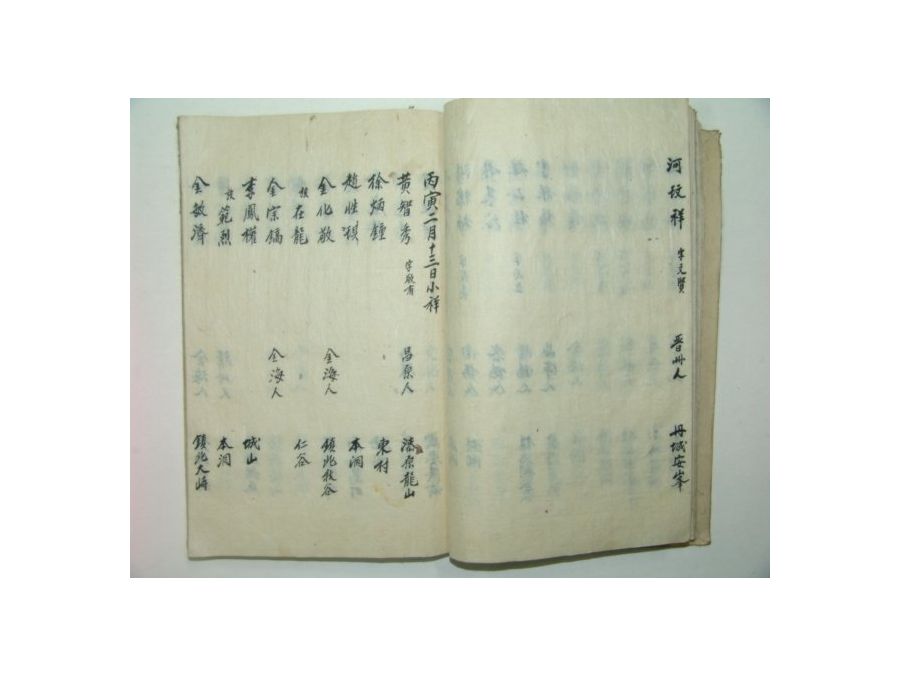 河玟祥 字文賢 晋州人 丹城安峯
丙寅二月十三日小祥
黄智秀 字敬有 昌原人 漆原龍山
徐炳鍾 東村
趙性 本洞
金化敬 金海人 鎮北牧谷
在龍 仁谷
金宗鎬 金海人
李鳳權 城山
範烈 本洞
金敏濟 鎮北大峙